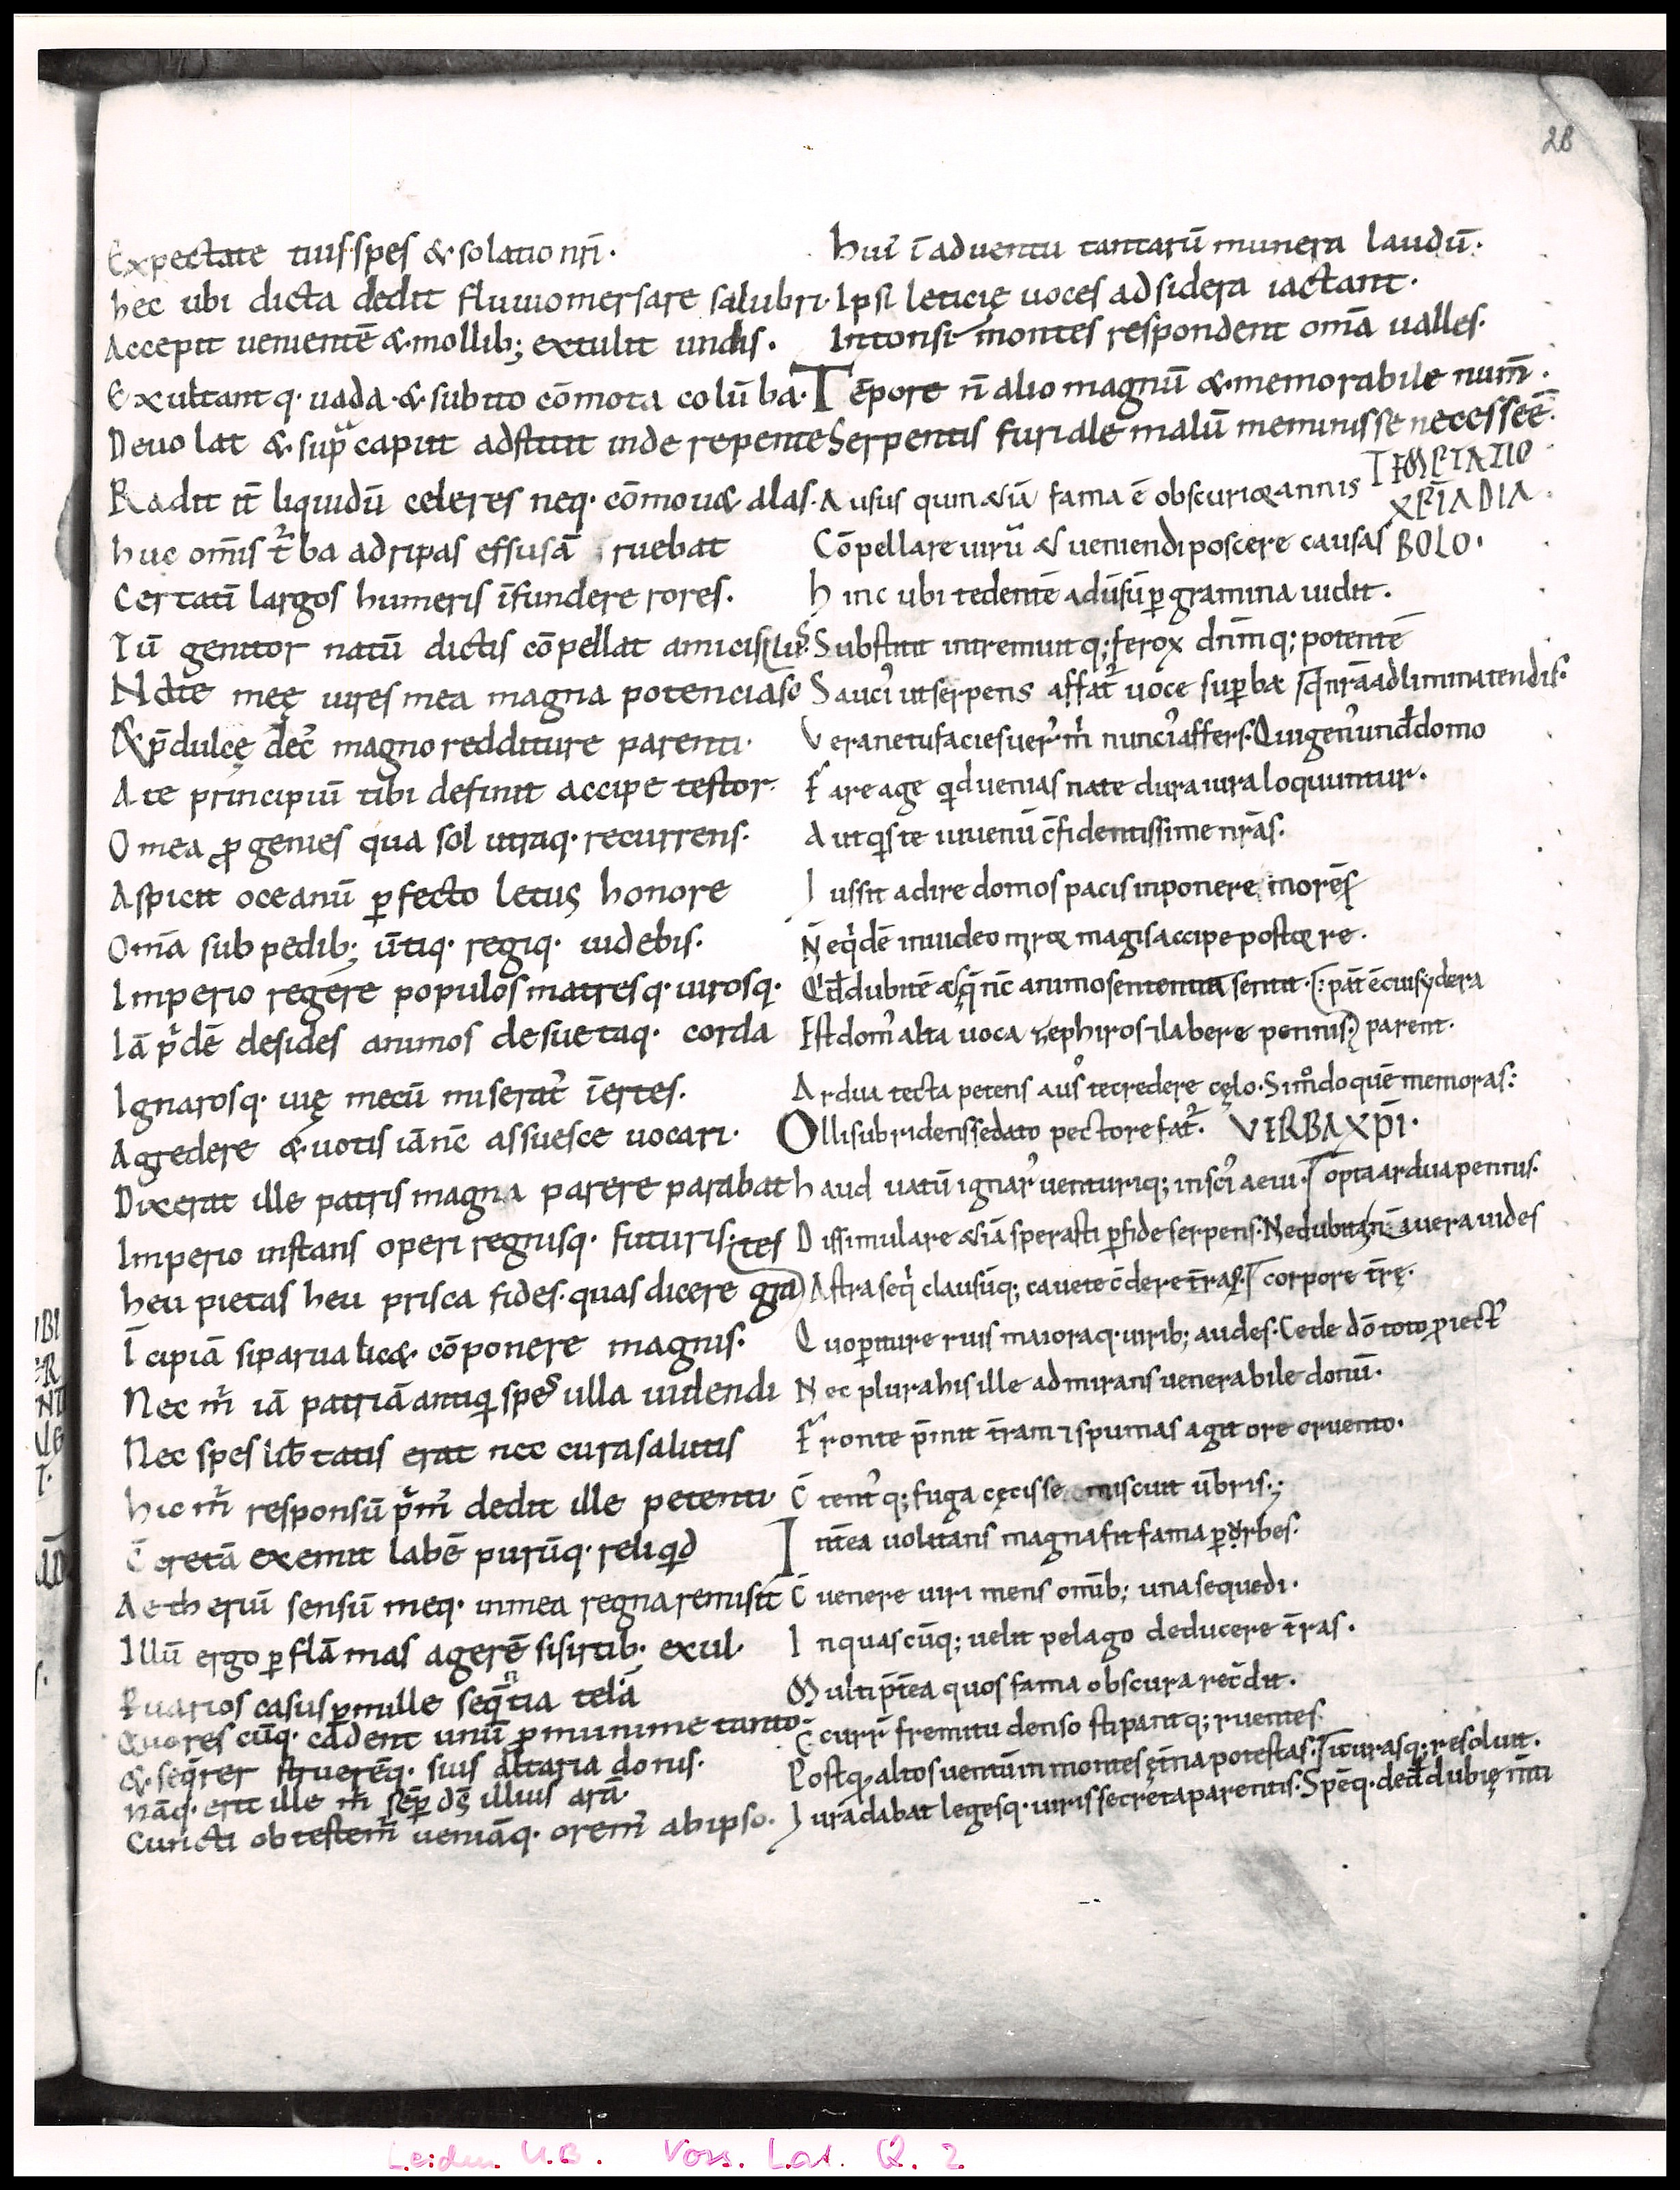 28
Expectate tuis spes & solatio nr̄i.
hec ubi dicta dedit fluuio mersare salubri.
Accepit uenientē & mollib; extulit undis.
Exultantq. uada. & subito cōmota colūba.
Deuolat & sup̄ caput adstitit inde repente
Radit it̄ liquidū celeres neq. cōmou& alas.
huc om̄is t̄ba ad ripas effusā ruebat
Certatī largos humeris īfundere rores.
Tū genitor natū dictis cōpellat amicis
Nate meę uires mea magna potencia so lus.
&p̄dulcę dec' magno redditure parenti.
A te principiū tibi definit accipe testor.
O mea progenies qua sol utruq. recurrens.
Aspicit oceanū perfecto letus honore
Om̄a sub pedib; ūtiq. regiq. uidebis.
Imperio regere populos matresq. uirosq.
Iā p̄dē desides animos desuetaq. corda
Ignarosq. uię mecū miserat' īertes.
Agredere & uotis iā nc̄ assuesce uocari.
Dixerat ille patris magna parere parabat
Imperio instans operi regnisq. futuris.
heu pietas heu prisca fides. quas dicere grates
Īcipiā si parua lic&. cōponere magnis.
Nec m̄ iā patriā antiqi spes ulla uidendi
Nec spes lib̄tatis erat nec cura salutis
hic m̄ responsū p̄m' dedit ille petenti.
C̄cretā exemit labē purūq. reliqid
Aetheriū sensū meq. in mea regna remisit
Illū ergo per flāmas agerē si sirtib. exul.
P uarios casus p mille seq̄ntia tela
Quo res cūq. cadent unū pro munime tanto.
& seq̄rer struerēq. suis altaria donis.
Nāq. erit ille m̄ sēp ds̄ illius arā.
Cuncti obtestem̄ ueniāq. orem' ab ipso.
hui' ī aduentu tantarū munera laudū.
Ipsi leticię uoces ad sidera iactant.
Intonsi montes respondent om̄a ualles.
Tēpore n̄ alio magnū & memorabile num̄.
Serpentis furiale malū meminisse necesse ē.
Ausus quin &iā fama ē obscurior annis TEMPTATIO
XP̄I A DIA
Cōpellare uirū & ueniendi poscere causas BOLO.
hinc ubi tedentē aduersū per gramina uidit.
Substitit intremuit q; ferox dnm̄q; potentē
Sauci' ut serpens affat' uoce superba nr̄a ad limina tendis.
Vera ne tu facies uer' m̄ nunci' affers. Qui gen' und̄ domo
Fare age qid uenias nate dura iura loquuntur.
Aut qis te iuuenū c̄fidentissime nr̄as.
Iussit adire domos pacis inponere morē
Neq̄dē inuideo miror magis accipe postq̄ re.
Qd̄ dubitē & q̄ nc̄ animo sententia sentit. pat̄ ē cui sydera
Est dom' alta uoca zephiros & labere pennis parent.
Ardua tecta petens aus' te credere cęlo. Si m̊do quē memoras.
Olli subridens sedato pectore fat̄. VERBA XP̄I.
haud uatū ignar' uenturiq; insci' aeui. opta ardua pennis.
Dissimulare &iā sperasti perfide serpens. Ne dubita n̄ ā uera uides
Astra seq̄ clausūq; caua te c̄dere tr̄a. corpore tr̄ę.
Quo periture ruis maioraq. uirib; audes. Cede dō toto proiect'
Nec plura his ille admirans uenerabile donū.
Fronte p̄mit tr̄am & spumas agit ore cruento.
C̄tent'q; fuga cęcis se miscuit ūbris.
Int̄ea uolitans magna fit fama per orbes.
C̄uenere uiri mens omib; una sequedi.
In quascūq; uelit pelago deducere tr̄as.
Multi p̄t̄ea quos fama obscura rec̄dit.
C̄curr̄ fremitu denso stipantq; ruentes.
Postq altos uentū in montes ętn̄a potestas. it curasq; resoluit.
Iura dabat legesq. uiris secreta parentis. Spēq. ded̄ dubię m̄ti
Leiden U.B. Voss. Lat. Q. 2